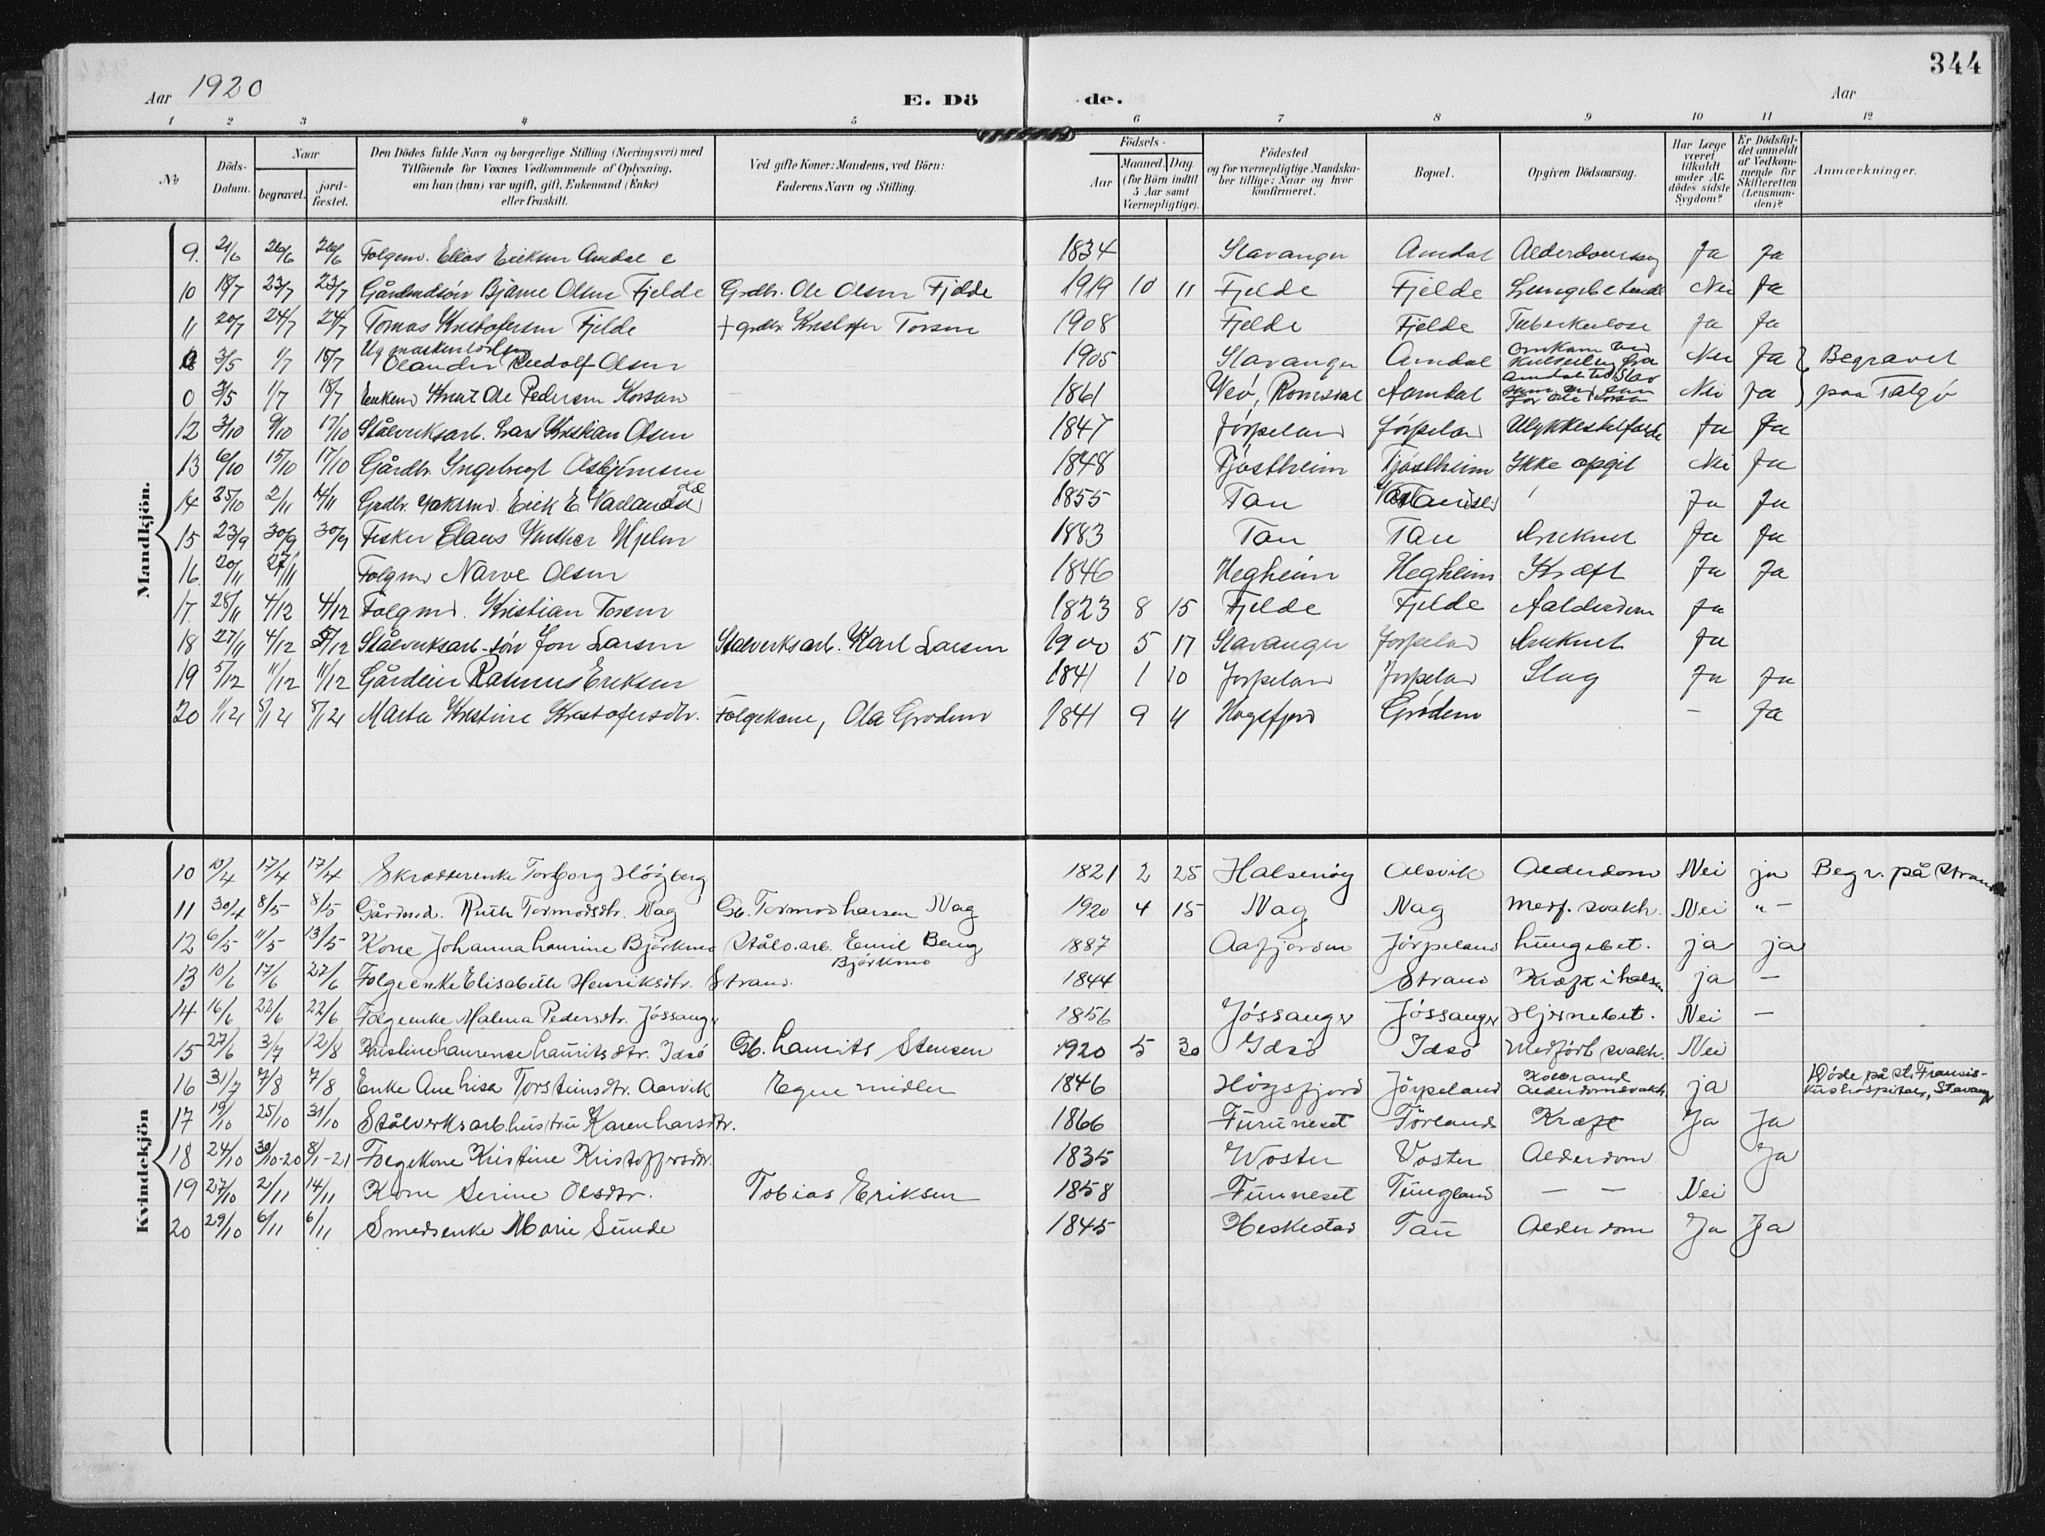 344
Aar 1920 E. Dö de. Aar
1 2 3 4 5 6 7 8 9 10 11 12
No Döds-Datum. Naar begravet. jord-fæstet. Den Dödes fulde Navn og borgerlige Stilling (Næringsvei) med Tilföiende for Voxnes Vedkommende af Oplysning, om han (hun) var ugift, gift, Enkemand (Enke) eller fraskilt. Ved gifte Koner: Mandens, ved Börn: Faderens Navn og Stilling. Födsels- Aar Maaned. Dag. (for Börn indtil 5 Aar samt Værnepligtige). Födested og for værnepligtige Mandskaber tillige: Naar og hvor konfirmeret. Bopæl. Opgiven Dödsaarsag. Har Læge været tilkaldt under Afdödes sidste Sygdom? Er Dödsfaldet anmeldt af Vedkommende for Skifteretten (Lensmanden)? Anmærkninger.
Mandkjön.
9. 21/6 26/6 26/6 Folgem. Elias Eriksen Amdal 1834 Stavanger Amdal Ja Ja
10 18/7 23/7 23/7 Bjarne Olsen Fjelde Grdbr. Ole Olsen Fjelde 1919 10 11 Fjelde Fjelde Nei Ja
11 20/7 24/7 24/7 Tomas Kristofersen Fjelde + grdbr Kristofer Torsen 1908 Fjelde Fjelde Tuberkulose Ja Ja
3/5 1/7 18/7 Olander Rudolf Olsen 1905 Stavanger Amdal Nei Ja Begravet
0 3/5 1/7 18/7 Enkem Knut Ole Pedersen Korsan 1861 Veö, Romsdal Aamdal Nei Ja paa Talgø
12 3/10 9/10 17/10 Stålverksarb. Lars Kristian Olsen 1847 Jörpeland Jörpeland Ulykkestilfælde Ja Ja
13 6/10 15/10 17/10 Gårdbr. Ingebregt Asbjörnsen 1848 Tjöstheim Tjöstheim Ikke opgit Nei Ja
14 25/10 2/11 14/11 Grdbr. Erik E. 1855 Tau Ja Ja
15 23/9 30/9 30/9 Fisker Claus Hjelm 1883 Tau Tau Druknet Ja Ja
16. 20/11 27/11 Folgm. Narve Olsen 1846 Hegheim Hegheim Kræft Ja Ja
17. 28/11 4/12 4/12 Folgmd. Kristian Torsen 1823 8 15 Fjelde Fjelde Aalderdom Ja
18 27/11 4/12 5/12 Stålverksarb.-sön Jon Larsen Stalverksarb. Karl Larsen 1900 5 17 Stavanger Jorpeland Druknet Ja
19 5/12 11/12 11/12 Rasmus Eriksen 1841 1 10 Jorpeland Jorpeland Slag Ja Ja
20 1/12 5/12 5/12 Marta Kristine Kristofersdtr. Folgekone, Ola Grodem 1841 9 4 Hogsfjord Grödem — Ja
Kvindekjön
10 10/4 17/4 17/4 Skrædderenke Torborg Högberg 1821 2 25 Halsenöy Alsvik Alderdom Nei ja Begr. på Strand
11 30/4 8/5 8/5 Gårdmd. Ruth Tormodsdtr. Nag Gb. Tormod Larsen Nag 1920 4 15 Nag Nag Medf. svakh. Nei " -
12 6/5 11/5 13/5 Kone Johanna Laurine Björkmo Stålv.arb. Emil Beng Björkmo 1887 Aafjorden Jörpeland Lungebet. ja ja
13 10/6 17/6 27/6 Folgeenke Elisabeth Henriksdtr. Strand. 1844 Strand Kræft i halsen ja —
14 16/6 22/6 22/6 Folgeenke Malena Pedersdtr. Jössanger 1856 Jössanger Jössanger Hjernebet. Nei —
15 27/6 3/7 12/8 Kristine Laurense Lauritsdtr. Idsö Gb. Laurits Stensen 1920 5 30 Idsö Idsö Medfödt svakh. Nei
16 31/7 7/8 7/8 Enke Ane Lisa Torsteinsdtr. Aarvik Egne midler 1846 Högsfjord Jörpeland Koldbrand Alderdomsvakh. ja Döde på St. Fransiskushospitalet, Stavanger
17 19/10 25/10 31/10 Stålverksarb.hustru Karen Larsdtr. 1866 Furuneset Törland Kræft Ja Ja
18 24/10 30/10-20 8/1-21 Folgekone Kristine Kristoffersdtr. 1835 Voster Voster Alderdom Ja
19 27/10 2/11 14/11 Kone Serine Olsdtr. Tobias Eriksen 1858 Funneset Tungland — — Nei
20 29/10 6/11 6/11 Smedsenke Marie Sunde 1845 Heskestad Tau Alderdom Ja Ja